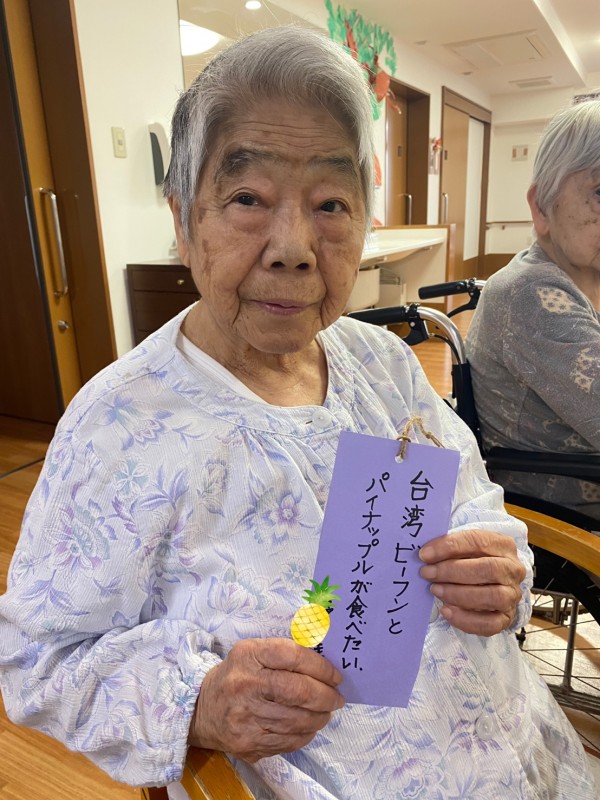 台湾ビーフンと
パイナップルが食べたい、